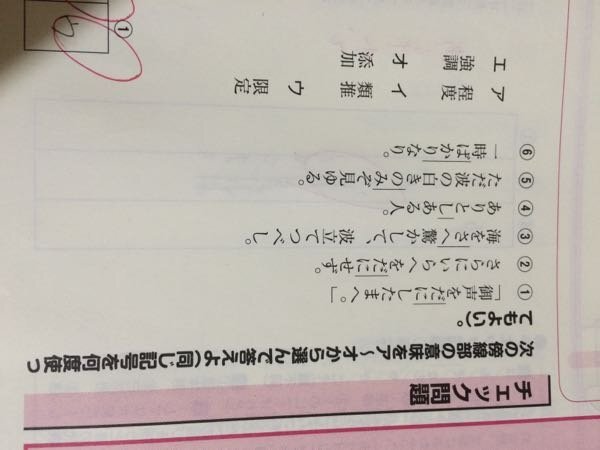 チェック問題
次の傍線部の意味をア～オから選んで答えよ(同じ記号を何度使っ
てもよい)。
① 「御声をだにしたまへ。」
② さらにいらへをだにせず。
③ 海をさへ驚かして、波立てつべし。
④ ありとしある人。
⑤ ただ波の白きのみぞ見ゆる。
⑥ 一時ばかりなり。
ア 程度 イ 類推 ウ 限定
エ 強調 オ 添加
①